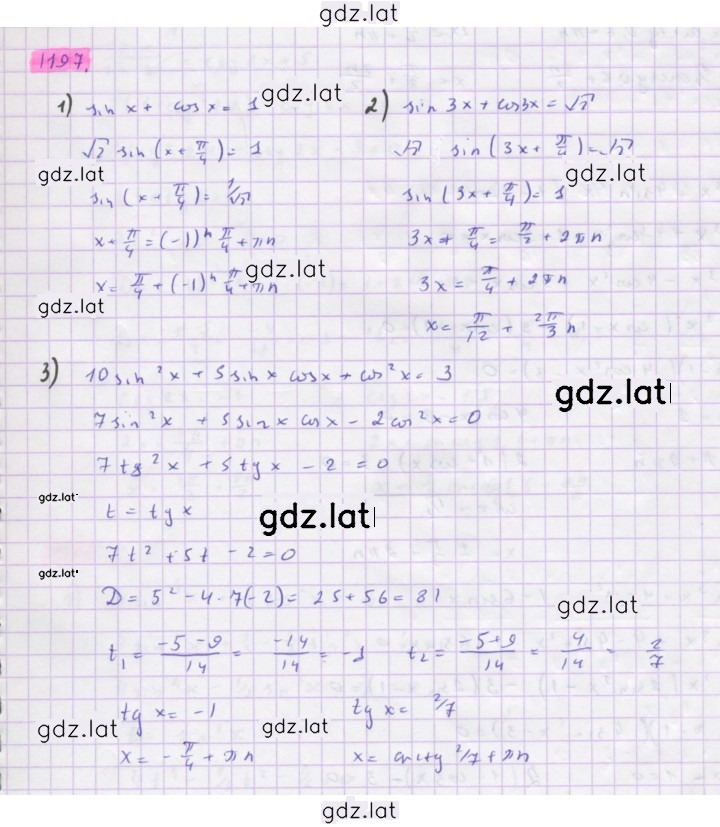 gdz.lat
1197.
1) sin x + cos x = 1 gdz.lat
√2 sin (x + π/4) = 1
gdz.lat
sin (x + π/4) = 1/√2
x + π/4 = (-1)ⁿ π/4 + πn
x = π/4 + (-1)ⁿ π/4 + πn gdz.lat
gdz.lat
2) sin 3x + cos 3x = √2
√2 sin (3x + π/4) = √2
gdz.lat
sin (3x + π/4) = 1
3x + π/4 = π/2 + 2πn
3x = π/4 + 2πn
x = π/12 + 2π/3 n
3) 10 sin²x + 5 sin x cos x + cos²x = 3
gdz.lat
7 sin²x + 5 sin x cos x - 2 cos²x = 0
7 tg²x + 5 tg x - 2 = 0
gdz.lat
t = tg x gdz.lat
7t² + 5t - 2 = 0
gdz.lat
D = 5² - 4 · 7(-2) = 25 + 56 = 81
gdz.lat
t₁ = -5-9/14 = -14/14 = -1 t₂ = -5+9/14 = 4/14 = 2/7
tg x = -1 tg x = 2/7
gdz.lat gdz.lat
x = -π/4 + πn x = arctg 2/7 + πn
gdz.lat